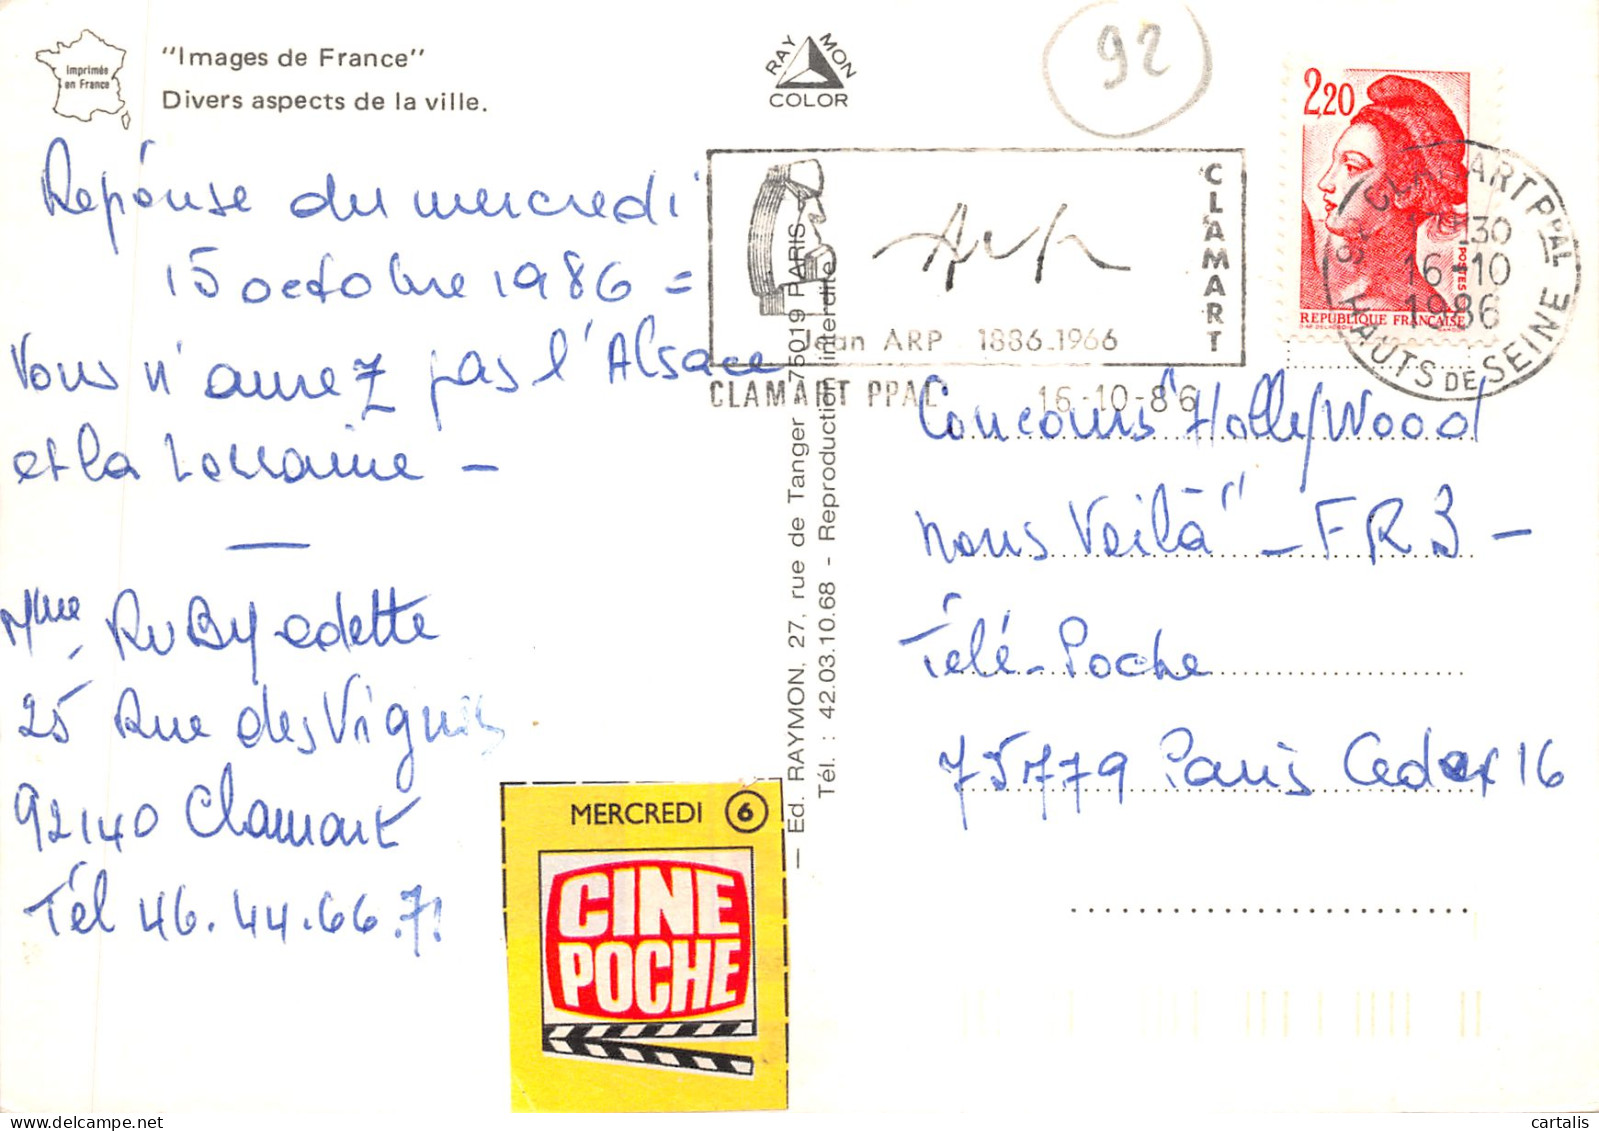 Imprimée
en France
"Images de France"
Divers aspects de la ville.
RAYMON
COLOR
92
2,20
POSTES
REPUBLIQUE FRANÇAISE
CLAMART PPAL
17-30
16-10
1986
HAUTS DE SEINE
CLAMART
Arp
Jean ARP 1886-1966
CLAMART PPAL 16-10-86
Repónse du mercredi
15 octobre 1986 =
Vous n'aurez pas l'Alsace
et la Lorraine -
Mme RuBy odette
25 Rue des Vignes
92140 Clamart
Tél 46.44.66.71
MERCREDI 6
CINE
POCHE
— Ed. RAYMON, 27, rue de Tanger 75019 PARIS
Tél. : 42.03.10.68 - Reproduction interdite
Concours "HollyWood
nous Voilà" - FR3 -
Télé-Poche
75779 Paris Cedex 16
cartalis